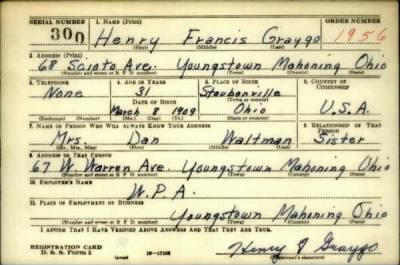 SERIAL NUMBER 1. NAME (Print) ORDER NUMBER
300 Henry Francis Graygo 1956
(First) (Middle) (Last)
2. ADDRESS (Print)
68 Scioto Ave. Youngstown Mahoning Ohio
(Number and street or R. F. D. number) (Town) (County) (State)
3. TELEPHONE 4. AGE IN YEARS 5. PLACE OF BIRTH 6. COUNTRY OF CITIZENSHIP
None 31 Steubenville
DATE OF BIRTH (Town or county)
March 8 1909 Ohio U.S.A.
(Exchange) (Number) (Mo.) (Day) (Yr.) (State or country)
7. NAME OF PERSON WHO WILL ALWAYS KNOW YOUR ADDRESS 8. RELATIONSHIP OF THAT PERSON
Mrs Dan Waltman Sister
(Mr., Mrs., Miss) (First) (Middle) (Last)
9. ADDRESS OF THAT PERSON
67 W. Warren Ave. Youngstown Mahoning Ohio
(Number and street or R. F. D. number) (Town) (County) (State)
10. EMPLOYER'S NAME
W.P.A.
11. PLACE OF EMPLOYMENT OR BUSINESS
Youngstown Mahoning Ohio
(Number and street or R. F. D. number) (Town) (County) (State)
I AFFIRM THAT I HAVE VERIFIED ABOVE ANSWERS AND THAT THEY ARE TRUE.
REGISTRATION CARD
D. S. S. Form 1 (over) Henry F Graygo
(Registrant's signature)